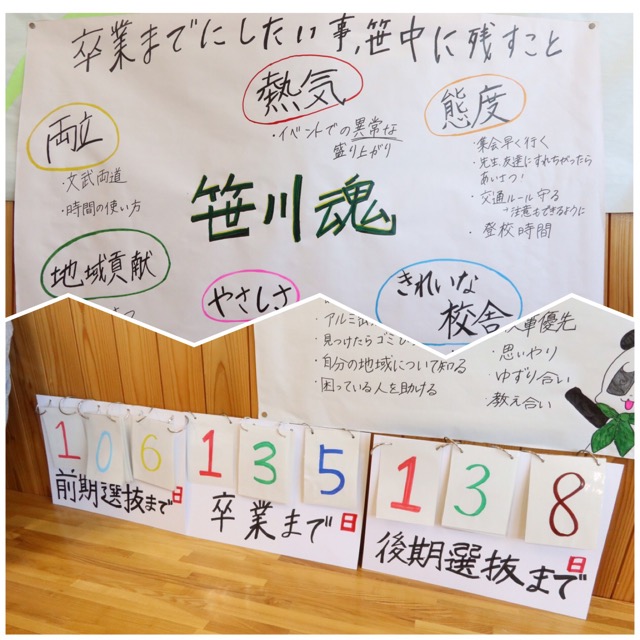 卒業までにしたい事、笹中に残すこと
熱気
・イベントでの異常な
盛り上がり
両立
・文武両道
・時間の使い方
態度
・集会早く行く
・先生、友達にすれちがったら
あいさつ!
・交通ルール守る
→注意もできるように
・登校時間
笹川魂
地域貢献
やさしさ
きれいな
校舎
・アルミ
・見つけたらゴミ
・自分の地域について知る
・困っている人を助ける
優先
・思いやり
・ゆずり合い
・教え合い
106
前期選抜まで日
135
卒業まで日
138
後期選抜まで日